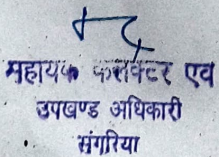 महायक कलेक्टर एव
उपखण्ड अधिकारी
संगरिया